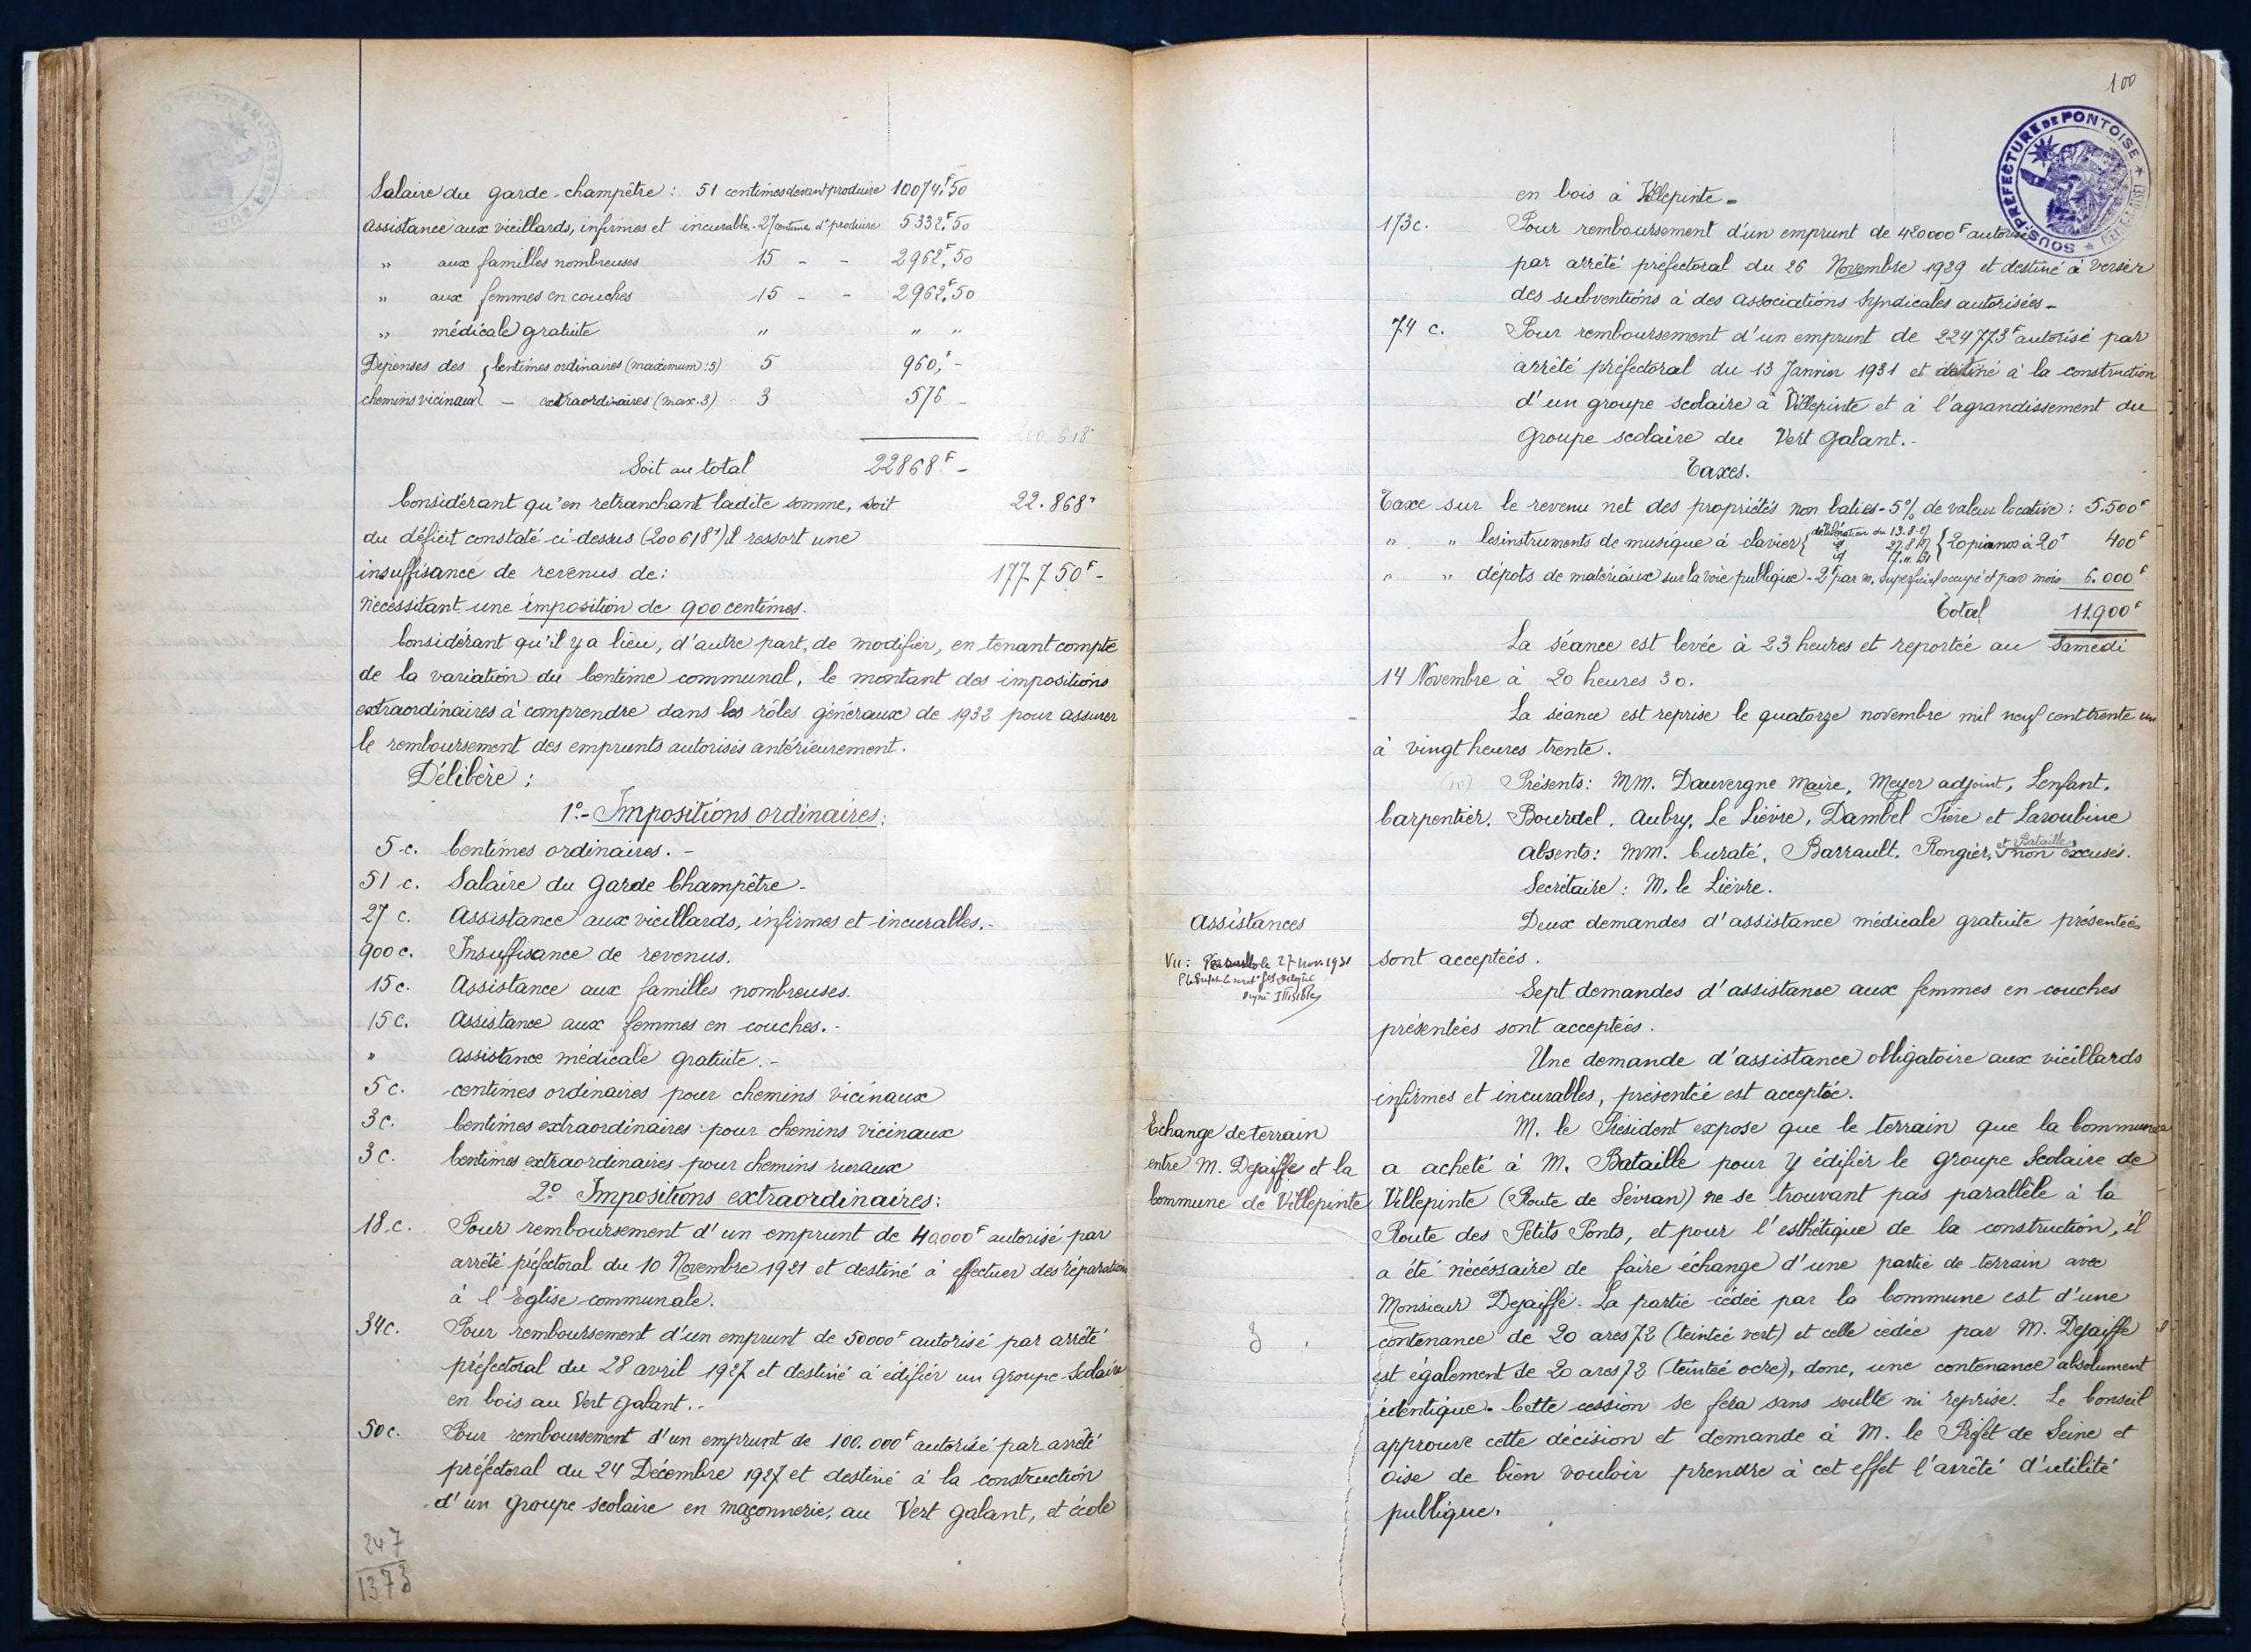 Salaire du garde-champêtre : 51 centimes devant produire 10074,F50
Assistance aux vieillards, infirmes et incurables - 27 centimes dt produire 5332,F50
" aux familles nombreuses 15 - - 2962,F50
" aux femmes en couches 15 - - 2962,F50
" médicale gratuite " " "
Dépenses des { Centimes ordinaires (maximum : 5) 5 960,F -
chemins vicinaux { - extraordinaires (max. 3) 3 576 -
Soit au total 22868F -
Considérant qu'en retranchant ladite somme, soit 22.868F
du déficit constaté ci-dessus (200618F) il ressort une
insuffisance de revenus de : 177750F -
Nécessitant une imposition de 900 centimes.
Considérant qu'il y a lieu, d'autre part, de modifier, en tenant compte
de la variation du Centime communal, le montant des impositions
extraordinaires à comprendre dans les rôles généraux de 1932 pour assurer
le remboursement des emprunts autorisés antérieurement.
Délibère :
1°- Impositions ordinaires :
5 c. Centimes ordinaires. -
51 c. Salaire du Garde Champêtre -
27 c. Assistance aux vieillards, infirmes et incurables. -
900 c. Insuffisance de revenus.
15 c. Assistance aux familles nombreuses.
15 c. Assistance aux femmes en couches. -
" Assistance médicale gratuite. -
5 c. centimes ordinaires pour chemins vicinaux
3 c. Centimes extraordinaires pour chemins vicinaux
3 c. Centimes extraordinaires pour chemins ruraux
2° Impositions extraordinaires :
18 c. Pour remboursement d'un emprunt de 40000F autorisé par
arrêté préfectoral du 10 Novembre 1921 et destiné à effectuer des réparations
à l'Eglise communale.
34 c. Pour remboursement d'un emprunt de 50000F autorisé par arrêté
préfectoral du 28 avril 1927 et destiné à édifier un groupe scolaire
en bois au Vert Galant. -
50 c. Pour remboursement d'un emprunt de 100.000F autorisé par arrêté
préfectoral du 24 Décembre 1927 et destiné à la construction
d'un groupe scolaire en maçonnerie, au Vert Galant, et école
247
1373
100
SOUS-PRÉFECTURE DE PONTOISE
en bois à Villepinte -
173 c. Pour remboursement d'un emprunt de 420000F autorisé
par arrêté préfectoral du 26 Novembre 1929 et destiné à verser
des subventions à des associations Syndicales autorisées -
74 c. Pour remboursement d'un emprunt de 224773F autorisé par
arrêté préfectoral du 13 Janvier 1931 et destiné à la construction
d'un groupe scolaire à Villepinte et à l'agrandissement du
Groupe scolaire du Vert Galant. -
Taxes.
Taxe sur le revenu net des propriétés non baties - 5% de valeur locative : 5.500F
" " les instruments de musique à clavier { délibération du 13.8.27 id 27.8.27 id 17.11.31 { 20 pianos à 20F 400F
" " dépots de matériaux sur la voie publique - 2F par m. superficiel occupé et par mois 6.000F
Total 11.900F
La séance est levée à 23 heures et reportée au Samedi
14 Novembre à 20 heures 30.
La séance est reprise le quatorze novembre mil neuf cent trente un
à vingt heures trente.
(10) Présents : MM. Dauvergne Maire, Meyer adjoint, Lenfant,
Carpentier, Bourdel, Aubry, Le Lièvre, Dambel Frère et Laroubine
Absents : MM. Curaté, Barrault, Rongier, et Bataille, non excusés.
Secrétaire : M. le Lièvre.
Assistances
Deux demandes d'assistance médicale gratuite présentées
sont acceptées.
Vu : le 27 nov. 1931
signé Illisible
Sept demandes d'assistance aux femmes en couches
présentées sont acceptées.
Une demande d'assistance obligatoire aux vieillards
infirmes et incurables, présentée est acceptée.
Echange de terrain
entre M. Dejaiffe et la
Commune de Villepinte
M. le Président expose que le terrain que la Commune
a acheté à M. Bataille pour y édifier le Groupe Scolaire de
Villepinte (Route de Sévran) ne se trouvant pas parallèle à la
Route des Petits Ponts, et pour l'esthétique de la construction, il
a été nécéssaire de faire échange d'une partie de terrain avec
Monsieur Dejaiffe. La partie cédée par la Commune est d'une
contenance de 20 ares 72 (teintée vert) et celle cédée par M. Dejaiffe
est également de 20 ares 72 (teintée ocre), donc, une contenance absolument
identique. Cette cession se fera sans soulte ni reprise. Le Conseil
approuve cette décision et demande à M. le Préfet de Seine et
Oise de bien vouloir prendre à cet effet l'arrêté d'utilité
publique.